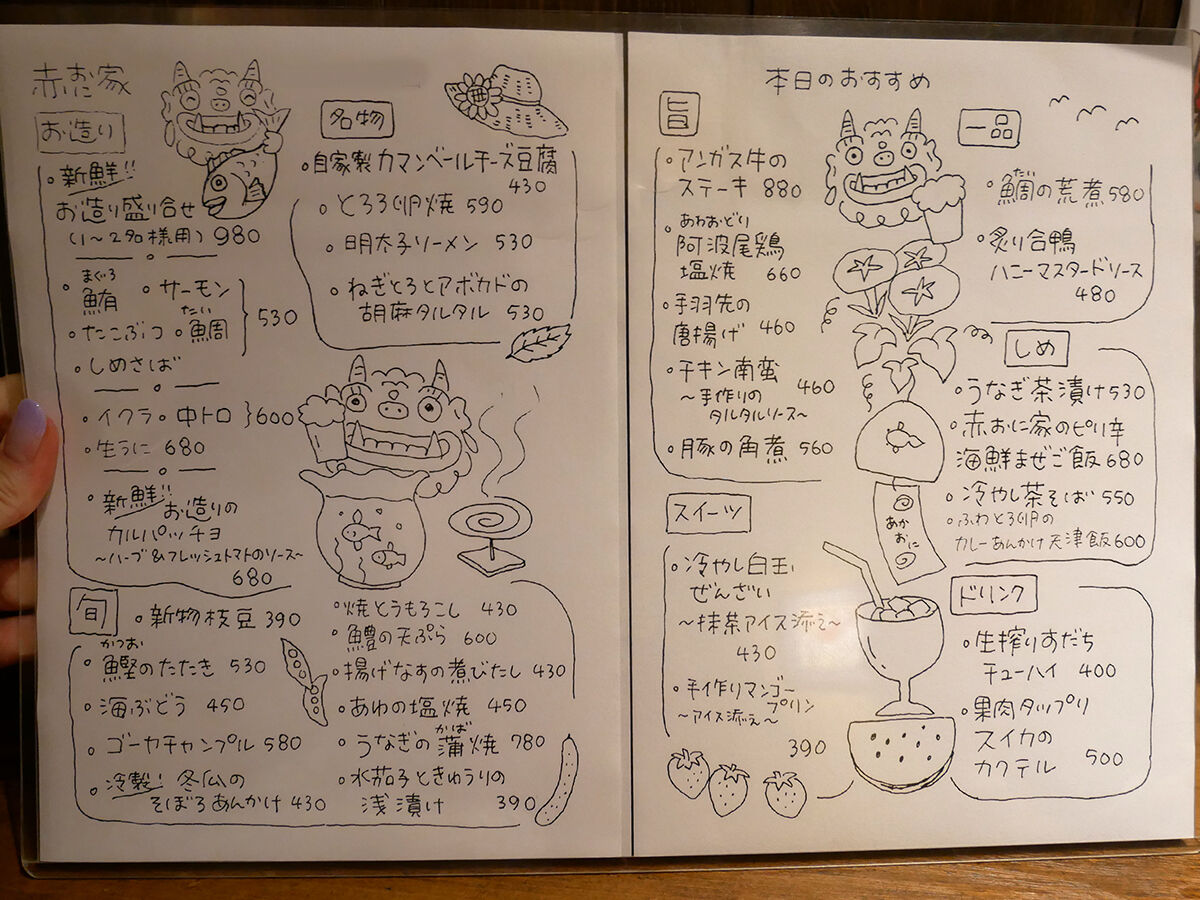 赤お家
お造り
新鮮!!
お造り盛り合せ
(1〜2名様用) 980
まぐろ
鮪 ・サーモン
たい
・たこぶつ ・鯛
530
・しめさば
・イクラ ・中トロ 600
・生うに 680
・新鮮!! お造りの
カルパッチョ
〜ハーブ&フレッシュトマトのソース〜
680
名物
・自家製カマンベールチーズ豆腐
430
・とろろ卵焼 590
・明太子ソーメン 530
・ねぎとろとアボカドの
胡麻タルタル 530
旬
・新物枝豆 390
かつお
・鰹のたたき 530
・海ぶどう 450
・ゴーヤチャンプル 580
・冷製! 冬瓜の
そぼろあんかけ 430
・焼とうもろこし 430
・鱧の天ぷら 600
・揚げなすの煮びたし 430
・あわの塩焼 450
かば
・うなぎの蒲焼 780
・水茄子ときゅうりの
浅漬け 390
本日のおすすめ
旨
・アンガス牛の
ステーキ 880
あわおどり
・阿波尾鶏
塩焼 660
・手羽先の
唐揚げ 460
・チキン南蛮
460
〜手作りの
タルタルソース〜
・豚の角煮 560
スイーツ
・冷やし白玉
ぜんざい
〜抹茶アイス添え〜
430
・手作りマンゴー
プリン
〜アイス添え〜
390
一品
たい
・鯛の荒煮 580
・炙り合鴨
ハニーマスタードソース
480
しめ
・うなぎ茶漬け 530
・赤おに家のピリ辛
海鮮まぜご飯 680
・冷やし茶そば 550
・ふわとろ卵の
カレーあんかけ天津飯 600
あか
おに
ドリンク
・生搾りすだち
チューハイ 400
・果肉タップリ
スイカの
カクテル 500